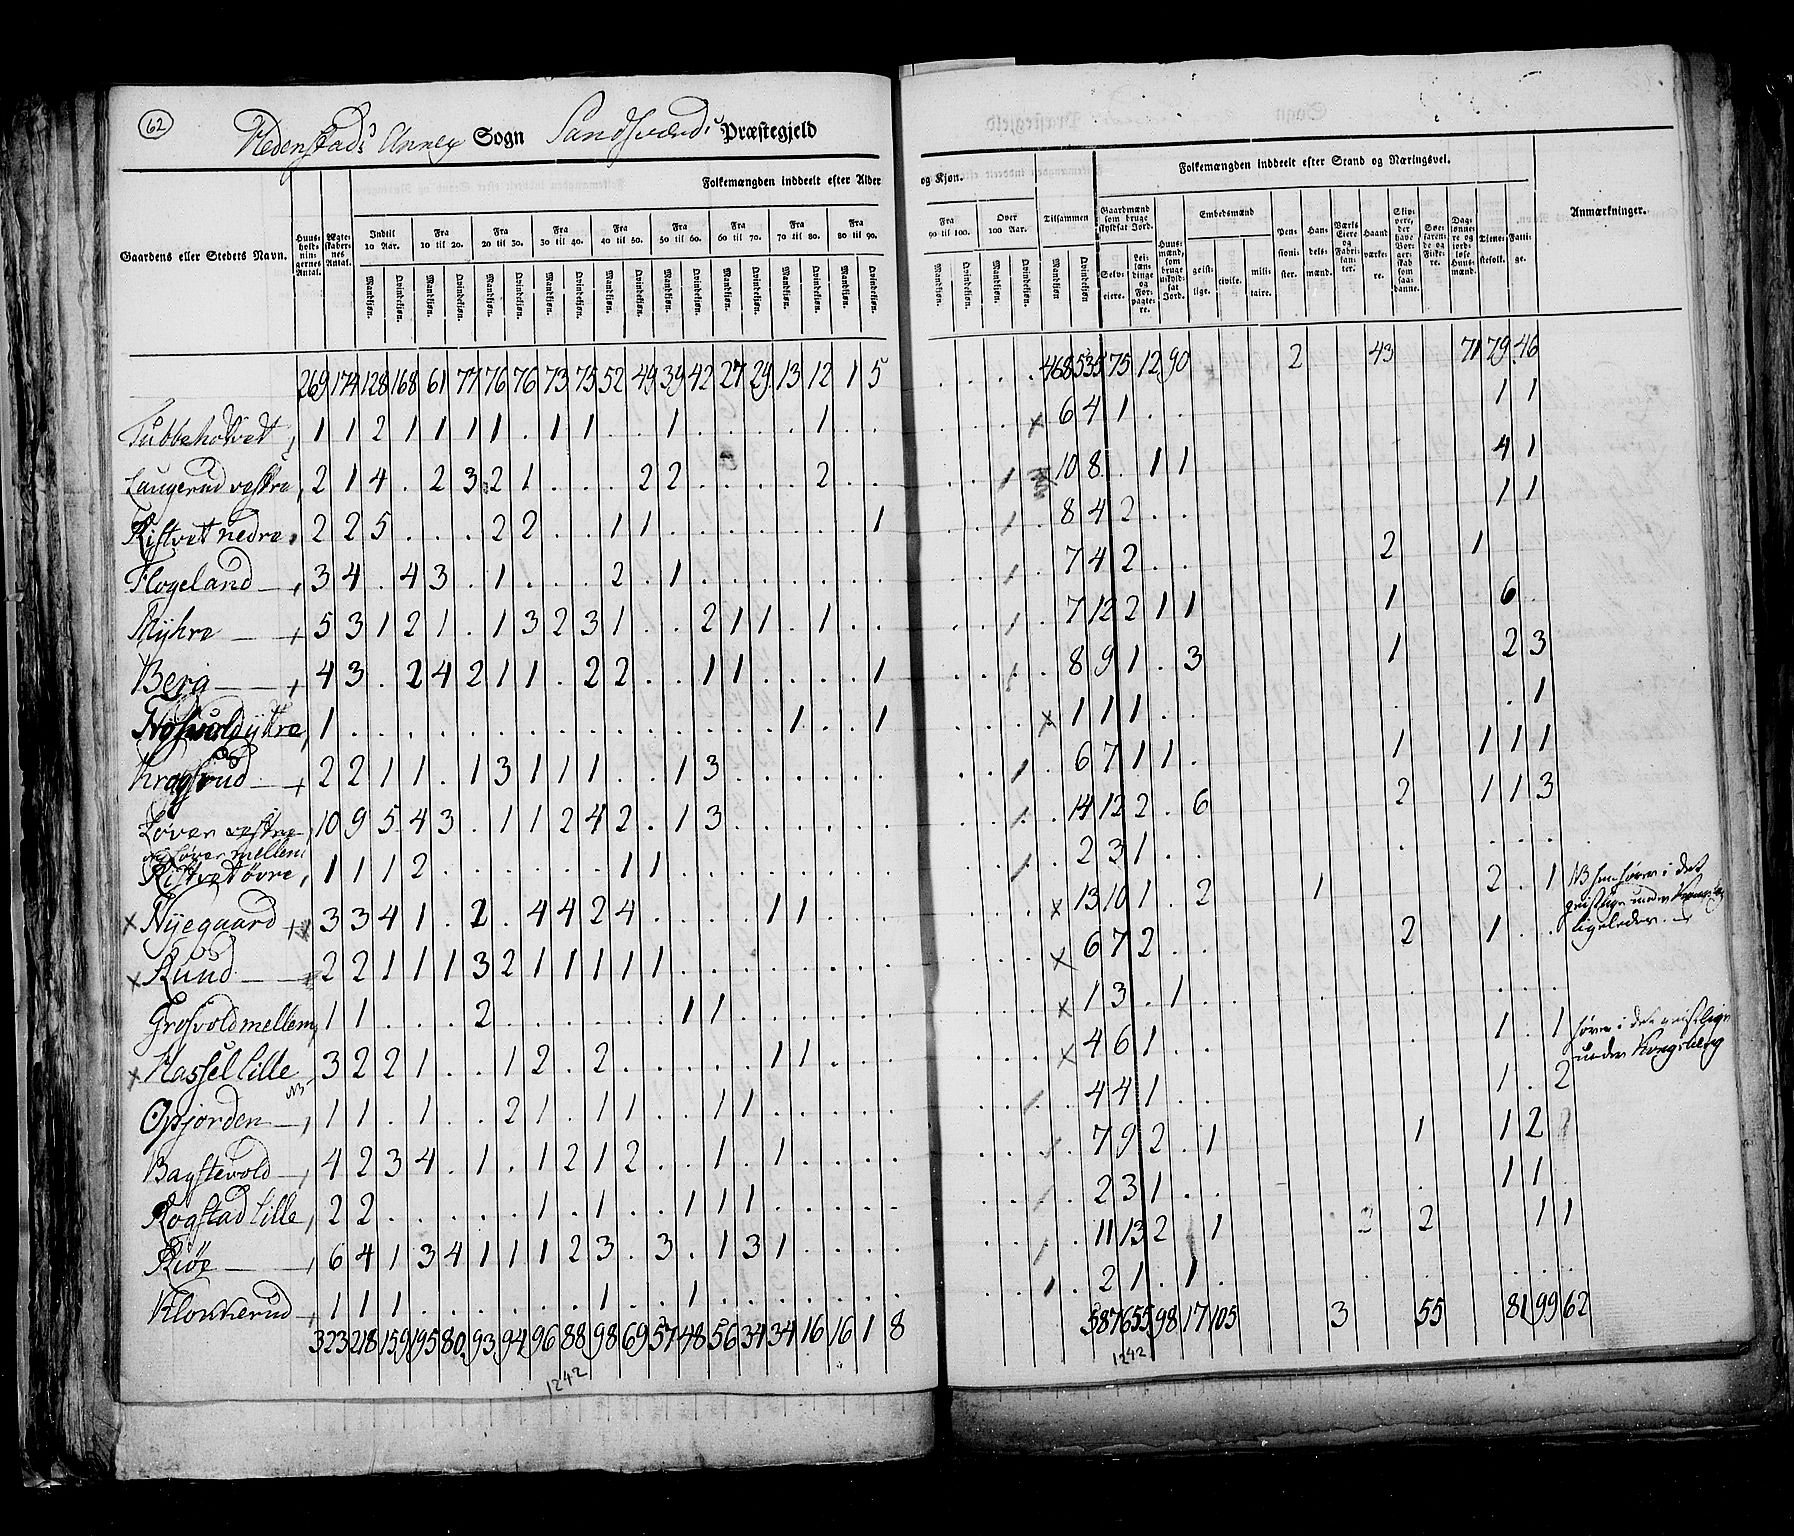 62
Hedenstads Annex Sogn Sandsværds Præstegjeld
Folkemængden inddeelt efter Alder
og Kjøn.
Folkemængden inddeelt efter Stand og Næringsvei.
Gaardens eller Stedets Navn.
Huus-holdnin-gernes Antal.
Ægte-skaber-nes Antal.
Indtil 10 Aar.
Fra 10 til 20.
Fra 20 til 30.
Fra 30 til 40.
Fra 40 til 50.
Fra 50 til 60.
Fra 60 til 70.
Fra 70 til 80.
Fra 80 til 90.
Fra 90 til 100.
Over 100 Aar.
Tilsammen
Mandkjøn. Qvindekjøn.
Gaardmænd som bruge skyldsat Jord.
Selv-eiere.
Huus-mænd, som bruge uskyld-sat Jord.
Embedsmænd
geist-lige.
civile.
mili-taire.
Pen-sioni-ster.
Han-dels-mænd.
Værks Eiere og Fabri-kanter.
Haand-værke-re.
Tjene-stefolk.
Fatti-ge.
Anmærkninger.
269 174 128 168 61 77 76 76 73 75 52 49 39 42 27 29 13 12 1 5 . . . . 468 535 75 12 90 2 43 71 79 46
Tubbeholvedt 1 1 2 1 1 1 1 . 1 1 . . 1 . . . . 1 . . x 6 4 1 . . 1 1
Laugerud vestre 2 1 4 . 2 3 2 1 . . . 2 2 . . . . 2 . . 10 8 . 1 1 4 1
Ristvet nedre 2 2 5 . . . 2 2 . . 1 1 . . . . . . . 1 8 4 2 . . 1 1
Flogeland 3 4 . 4 3 . 1 . . . 2 . 1 . . . . . . . 7 4 2 . . 2 1
Myhre 5 3 1 2 1 . 1 3 2 3 1 . . 2 1 1 . 1 . . 7 12 2 1 1 1 6 .
Berg 4 3 . 2 4 2 1 1 . 2 2 . . 1 1 . . . . 1 8 9 1 . 3 1 2 3
Grosvold ÿttre 1 . . . . . . . . . . . . . . . 1 . . 1 x 1 1 1 . . 1
Kragsrud 2 2 1 1 . 1 3 1 1 1 . . 1 3 . . . . . . 6 7 1 1 . 1 1 1 1
Løver vestre 10 9 5 4 3 . 1 1 2 4 2 . 1 3 . . . . . . 14 12 2 . 6 2 1 1 3
og Løver mellem
Ristvet øvre 1 1 1 2 . . . . . . 1 1 . . . . . . . . 2 3 1 . .
x Nyegaard 3 3 4 1 . 2 . 4 4 2 4 . . . . 1 1 . . . x 13 10 1 . 2 1 2 . 1
x Ruud 2 2 1 1 1 3 2 1 1 1 1 1 . . . . . . . . x 6 7 2 . . 2 1 . .
Grosvold mellem 1 1 . . . 2 . . . . . . 1 1 . . . . . . x 1 3 . 1 .
x Hassel lille 3 2 2 1 . . 1 2 . 2 . . . . . 1 1 . . . x 4 6 1 . . 1 . 1
under Kongsberg
NB
Opjorden 1 1 . 1 . . 2 1 . 1 1 . . 1 1 . . . . . 4 4 1 . . 1 . 2
Bagstevold 4 2 3 4 . 1 . 1 2 1 2 . . 1 . 1 . . . . 7 9 2 . 1 1 1 2
Rogstad lille 2 2 . . . . . 1 . 1 . . 1 1 1 . . . . . 2 3 1 . . 1 1 .
Riøe 6 4 1 3 4 1 1 1 2 3 . 3 . 1 3 1 . . . . 11 13 2 . 1 2 2 1 1
Klokkerud 1 1 1 . . . . . . 1 . . 1 . . . . . . . 2 1 . 1 .
323 218 159 195 80 93 94 96 88 98 69 57 48 56 34 34 16 16 1 8 587 655 98 17 105 3 55 81 99 62
1242
1242